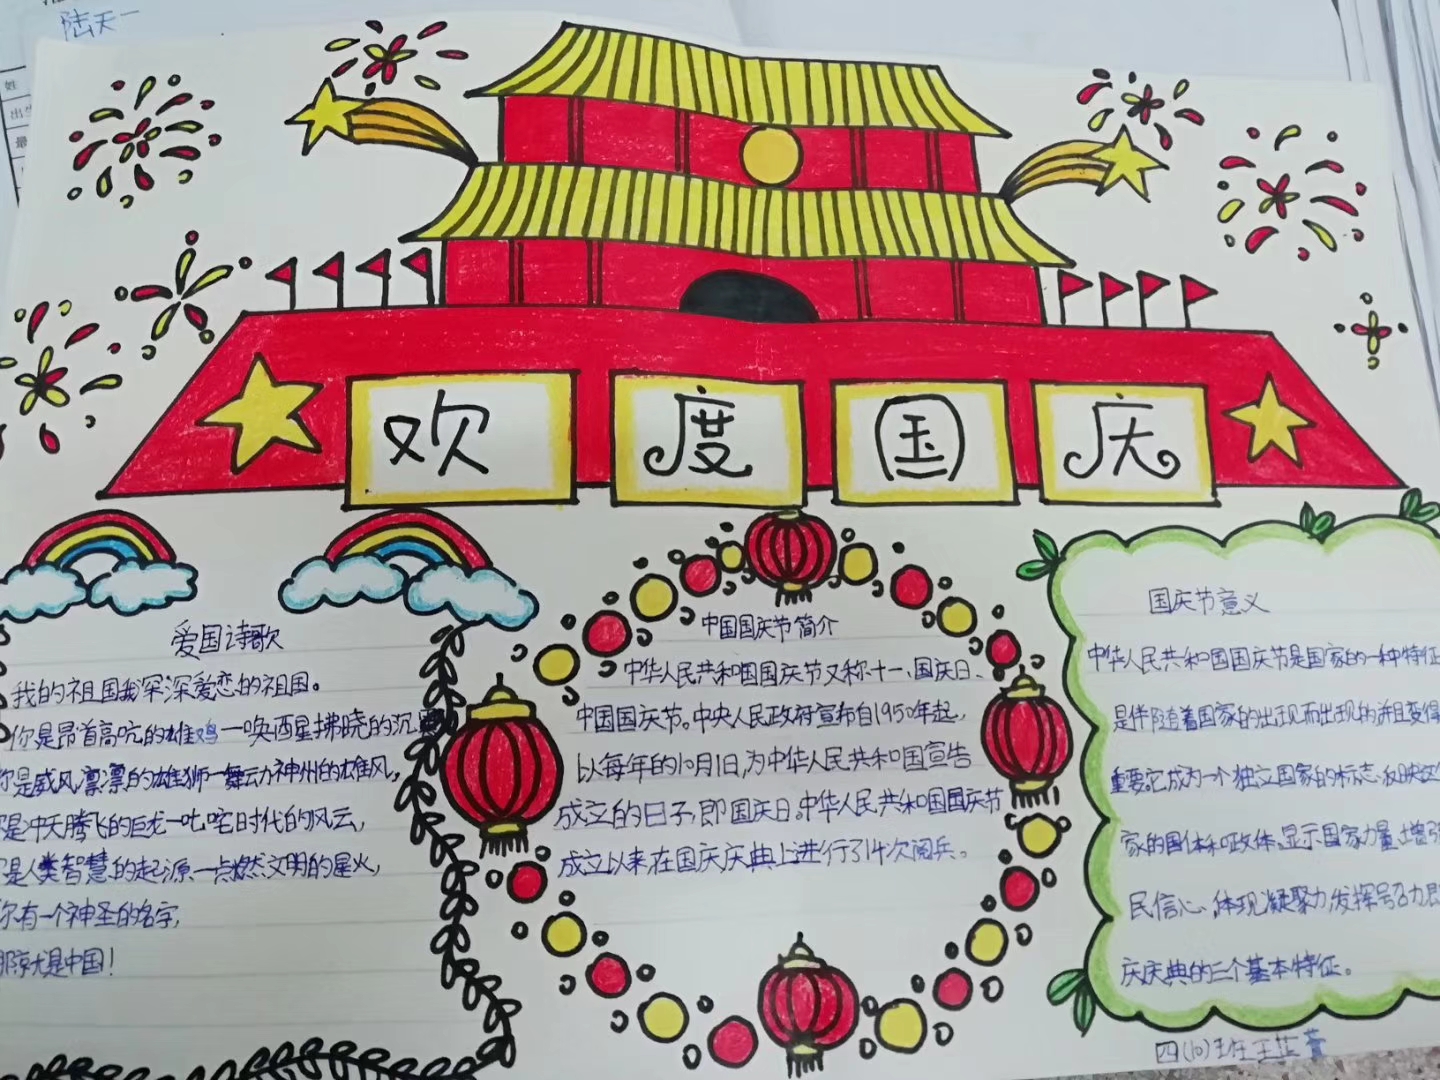 陆天一
姓
出生
最
欢度国庆
爱国诗歌
我的祖国我深深爱恋的祖国。
你是昂首高吭的雄鸡一唤西星拂晓的沉
你是威风凛凛的雄狮一舞动神州的雄风,
是冲天腾飞的巨龙一叱咤时代的风云,
是人类智慧的起源一点燃文明的星火,
你有一个神圣的名字,
那就是中国!
中国国庆节简介
中华人民共和国国庆节又称十一、国庆日、
中国国庆节。中央人民政府宣布自1950年起,
以每年的10月1日,为中华人民共和国宣告
成立的日子,即国庆日。中华人民共和国国庆节
成立以来在国庆庆典上进行了14次阅兵。
国庆节意义
中华人民共和国国庆节是国家的一种特征
是伴随着国家的出现而出现的并且变得
重要它成为一个独立国家的标志,反映这个
家的国体和政体,显示国家力量,增强
民信心,体现凝聚力,发挥号召力即
庆庆典的三个基本特征。
四(10)班王芷萱